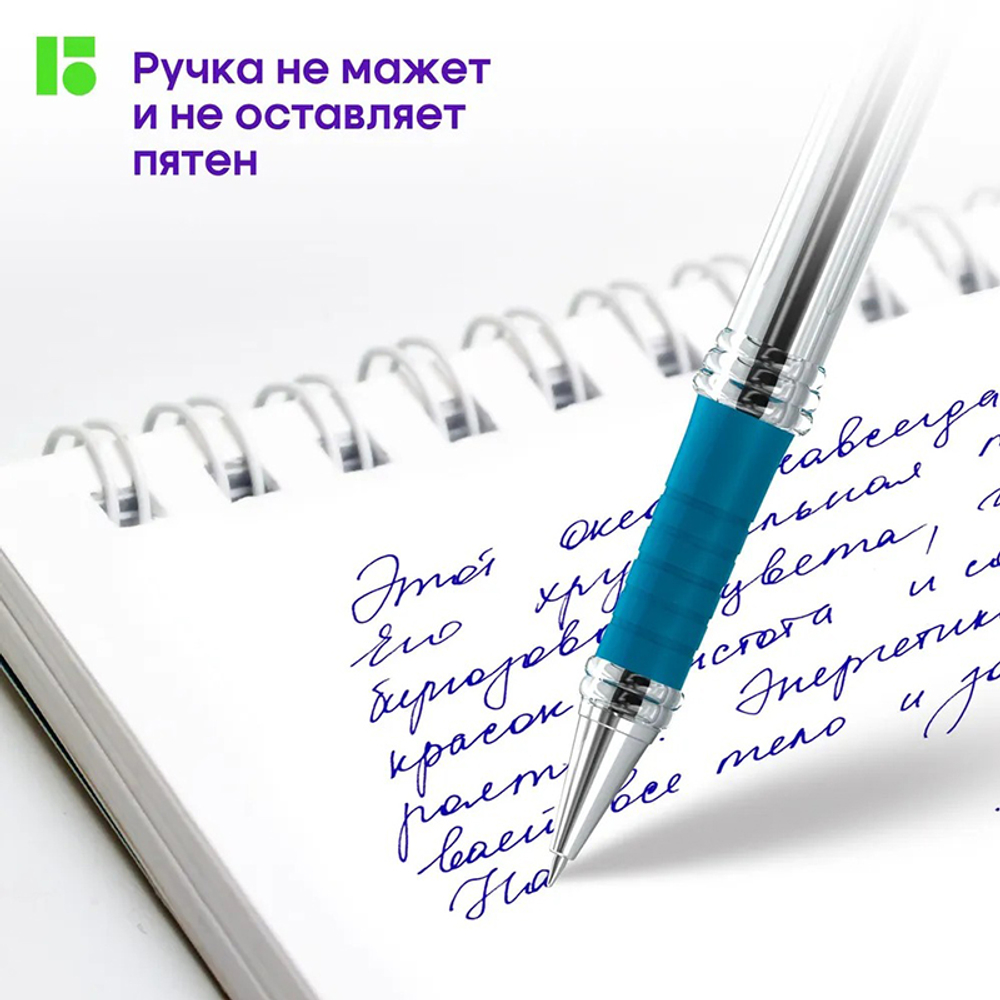 Ручка не мажет
и не оставляет
пятен
Этот океа навсегда
Его хру льная
бирюзов цвета,
красок истота и со
Энергетик
вает все тело и за
На